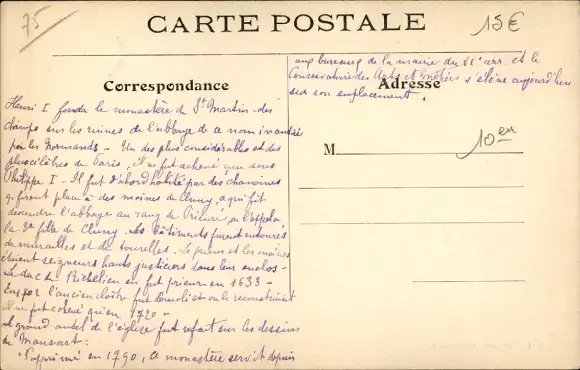 75
CARTE POSTALE
15€
Correspondance
Adresse
M
10er
Henri I fonda le monastère de St Martin-des
champs sur les ruines de l'abbaye de ce nom
par les Normands - Un des plus considérables et des
plus célèbres de Paris, il ne fut achevé que sous
Philippe I - Il fut d'abord habité par des chanoines
qui firent place à des moines de Cluny, ce qui fit
descendre l'abbaye au rang de Prieuré, on l'appela
la 2e fille de Cluny. Les bâtiments furent entourés
de murailles et de tourelles. Le prieur et les moines
étaient seigneurs hauts justiciers dans leur enclos -
Le duc de Richelieu en fut prieur en 1633 -
l'ancien cloître fut démoli et on le reconstruisit
il ne fut achevé qu'en 1720 -
Le grand autel de l'église fut refait sur les dessins
de Mansart:
Supprimé en 1790, ce monastère servit depuis
aux bureaux de la mairie du arr. et le
Conservatoire des Arts et Métiers s'élève aujourd'hui
sur son emplacement.